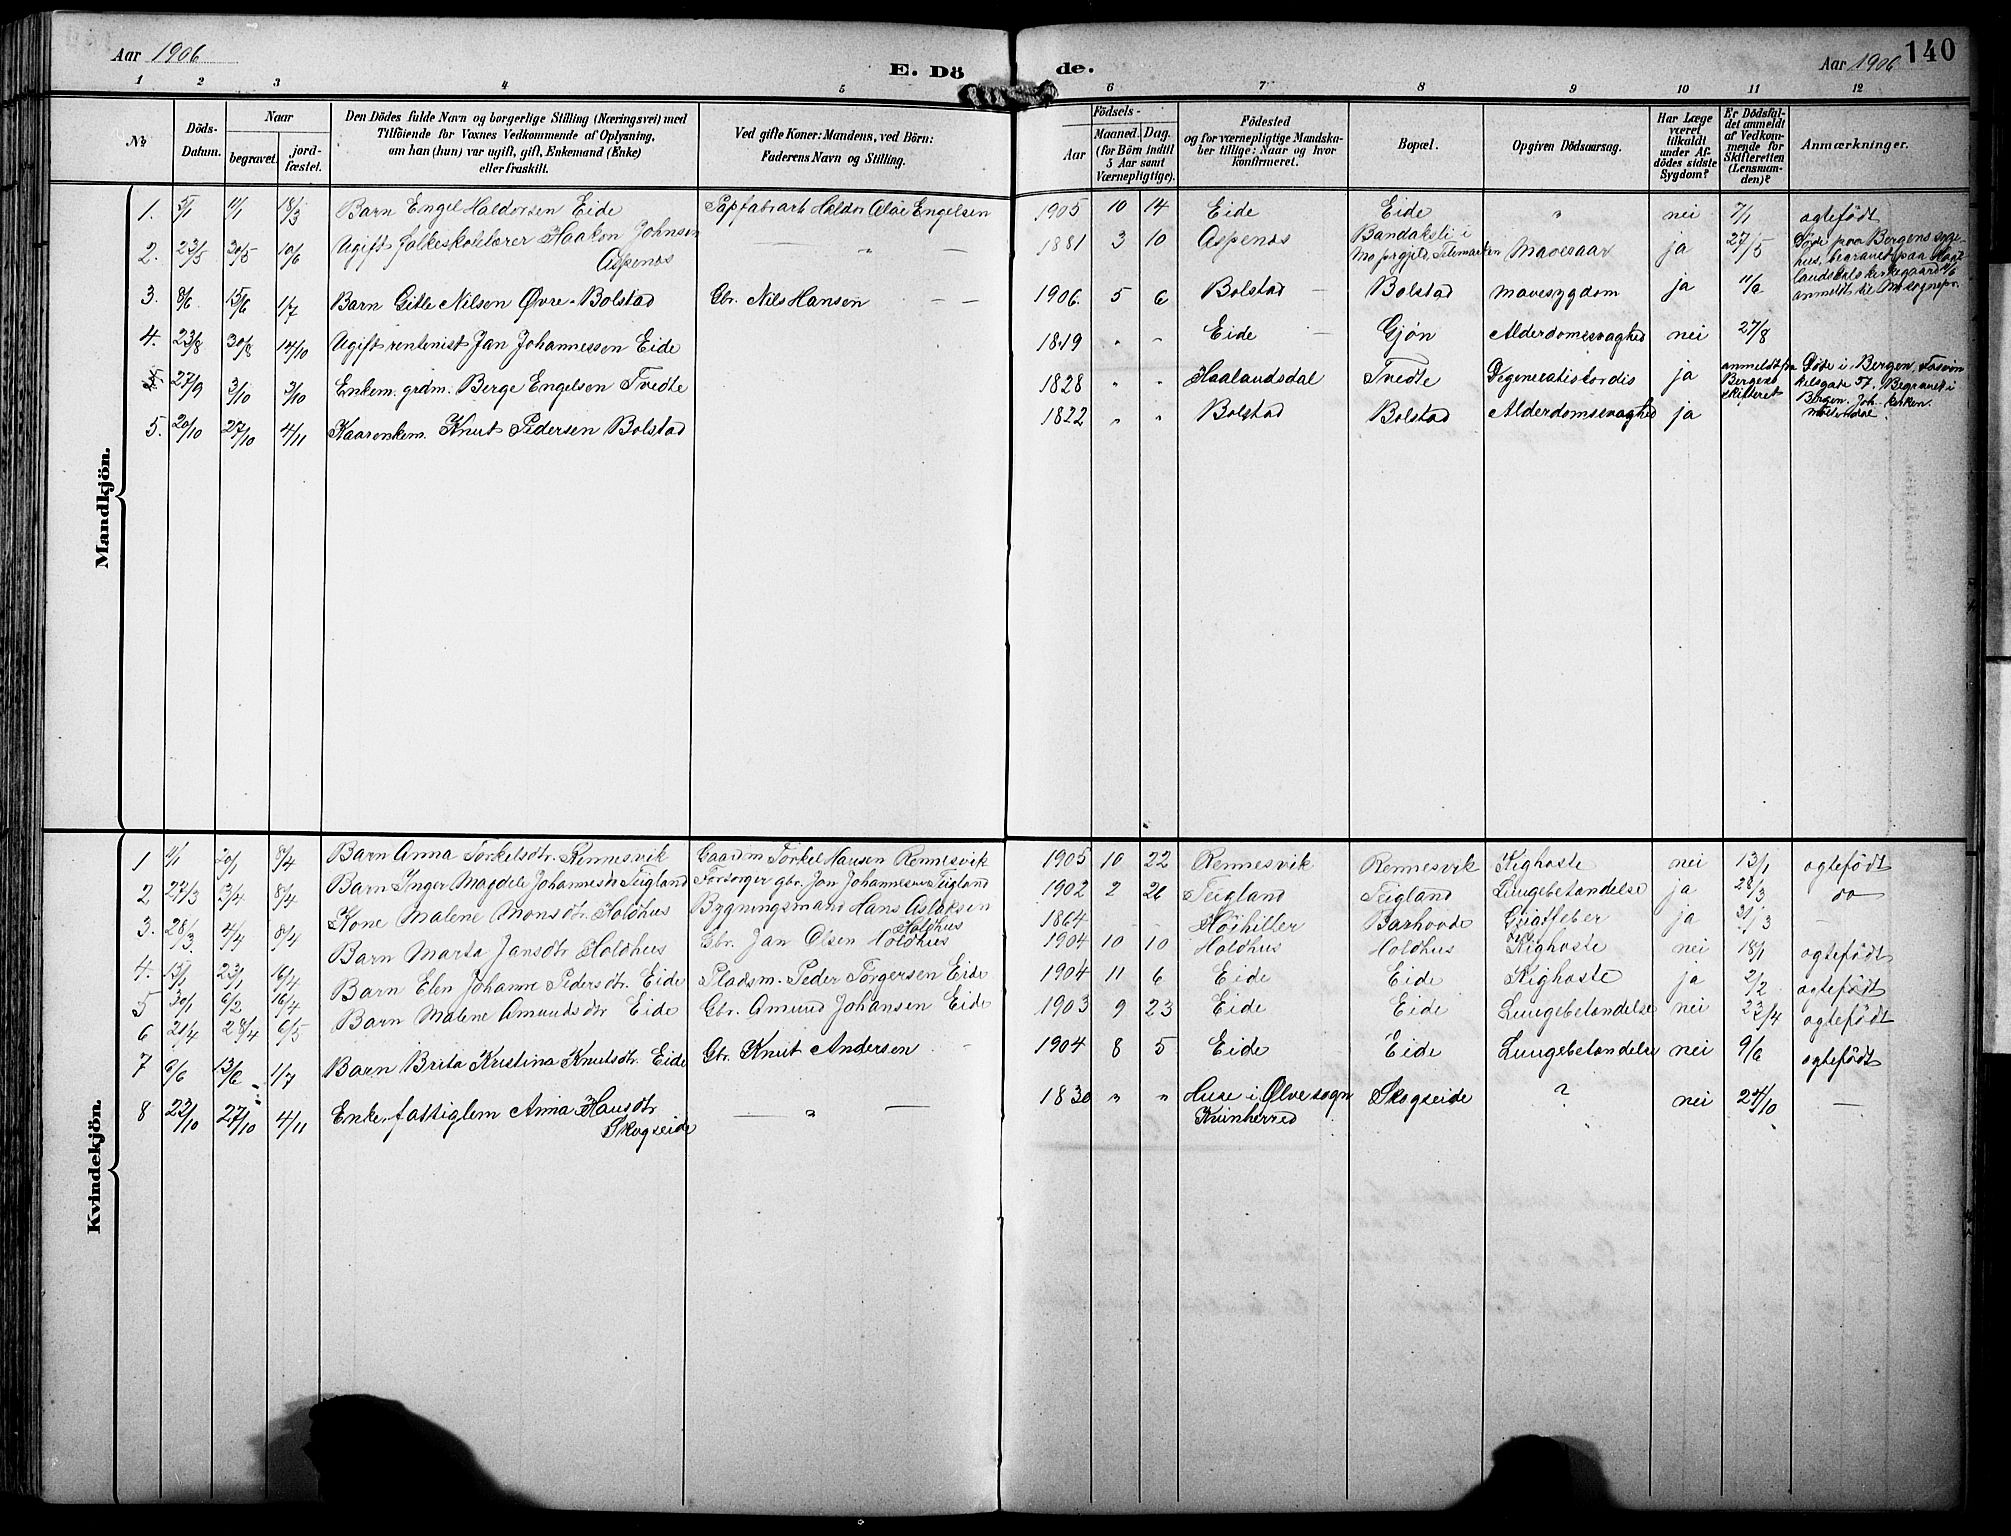 Aar 1906
E. Dö de.
Aar 1906 140
1 2 3 4 5 6 7 8 9 10 11 12
No.
Döds-Datum.
Naar
begravet.
jordfæstet.
Den Dödes fulde Navn og borgerlige Stilling (Næringsvei) med
Tilföiende for Voxnes Vedkommende af Oplysning,
om han (hun) var ugift, gift, Enkemand (Enke)
eller fraskilt.
Ved gifte Koner: Mandens, ved Börn:
Faderens Navn og Stilling.
Födsels-
Aar
Maaned. Dag.
(for Börn indtil
5 Aar samt
Værnepligtige).
Födested
og for værnepligtige Mandska-
ber tillige: Naar og hvor
konfirmeret.
Bopæl.
Opgiven Dödsaarsag.
Har Læge
været
tilkaldt
under Af-
dödes sidste
Sygdom?
Er Dödsfal-
det anmeldt
af Vedkom-
mende for
Skifteretten
(Lensman-
den)?
Anmærkninger.
Mandkjön.
1. 5/1 11/1 18/3 Barn Engel Haldorsen Eide Papfabrarb Haldor Engelsen 1905 10 14 Eide Eide " nei 7/1 ægtefödt
2. 23/5 30/5 10/6 Ugift folkeskolelærer Haakon Johnsen Aspenes — " — 1881 3 10 Aspenes Bandaksli i Mo prgjeld, Telemarken Mavesaar ja 27/5 Döde paa Bergens sygehus, begravet paa Haalandsdals kirkegaard
3. 8/6 15/6 1/7 Barn Gitle Nilsen Øvre-Bolstad Gbr. Nils Hansen — — 1906. 5 6 Bolstad — Bolstad Mavesygdom ja 11/6
4. 23/8 30/8 14/10 Ugift rentenist Jan Johannessen Eide 1819 " " Eide — Gjøn Alderdomssvaghed nei 27/8
27/9 3/10 3/10 Enkem. grdm. Berge Engelsen Tvedte 1828 " " Haalandsdal Tvedte ja anmeldt fra Bergens skifteret Döde i Bergen, Begravet i Bergen. Joh. kirken.
5. 20/10 27/10 4/11 Kaarenkem. Knut Pedersen Bolstad 1822 " " Bolstad Bolstad Alderdomssvaghed ja
Kvindekjön.
1 20/1 8/4 Barn Anna Torkelsdtr. Rennesvik Gaardm Torkel Hansen Rennesvik 1905 10 22 Rennesvik Rennesvik Kighoste nei 13/1 ægtefödt
2 27/3 3/4 8/4 Barn Inger Magdele Johannesdtr Teigland Forsørger gbr. Jon Johannesen Teigland 1902 2 26 Teigland Teigland Lungebetændelse ja 28/3 do
3. 28/3 4/4 8/4 Kone Malene Monsdtr. Holdhus Bygningsmand Hans Aslaksen Holdhus 1864 — — Höihiller Barhovde ja 31/3
4. 15/1 23/1 16/4 Barn Marta Jansdtr Holdhus Gbr. Jan Olsen Holdhus 1904 10 10 Holdhus Holdhus Kighoste nei 18/1 ægtefödt
5 30/1 6/2 16/4 Barn Elen Johanne Pedersdtr. Eide Pladsm. Peder Torgersen Eide 1904 11 6 Eide Eide Kighoste ja 2/2 ægtefödt
6 21/4 28/4 6/5 Barn Malene Amundsdtr Eide Gbr. Amund Johansen Eide 1903 9 23 Eide Eide Lungebetændelse nei 23/4 ægtefödt
7 6/6 13/6 1/7 Barn Brita Kristina Knutsdtr. Eide Gbr. Knut Andersen — 1904 8 5 Eide Eide Lungebetændelse nei 9/6 ægtefödt
8 23/10 27/10 4/11 Enke, fattiglem Anna Hansdtr Skogseide — " — 1830 " " Huse i Ølve sogn Kvinherred Skogseide ? nei 24/10 —